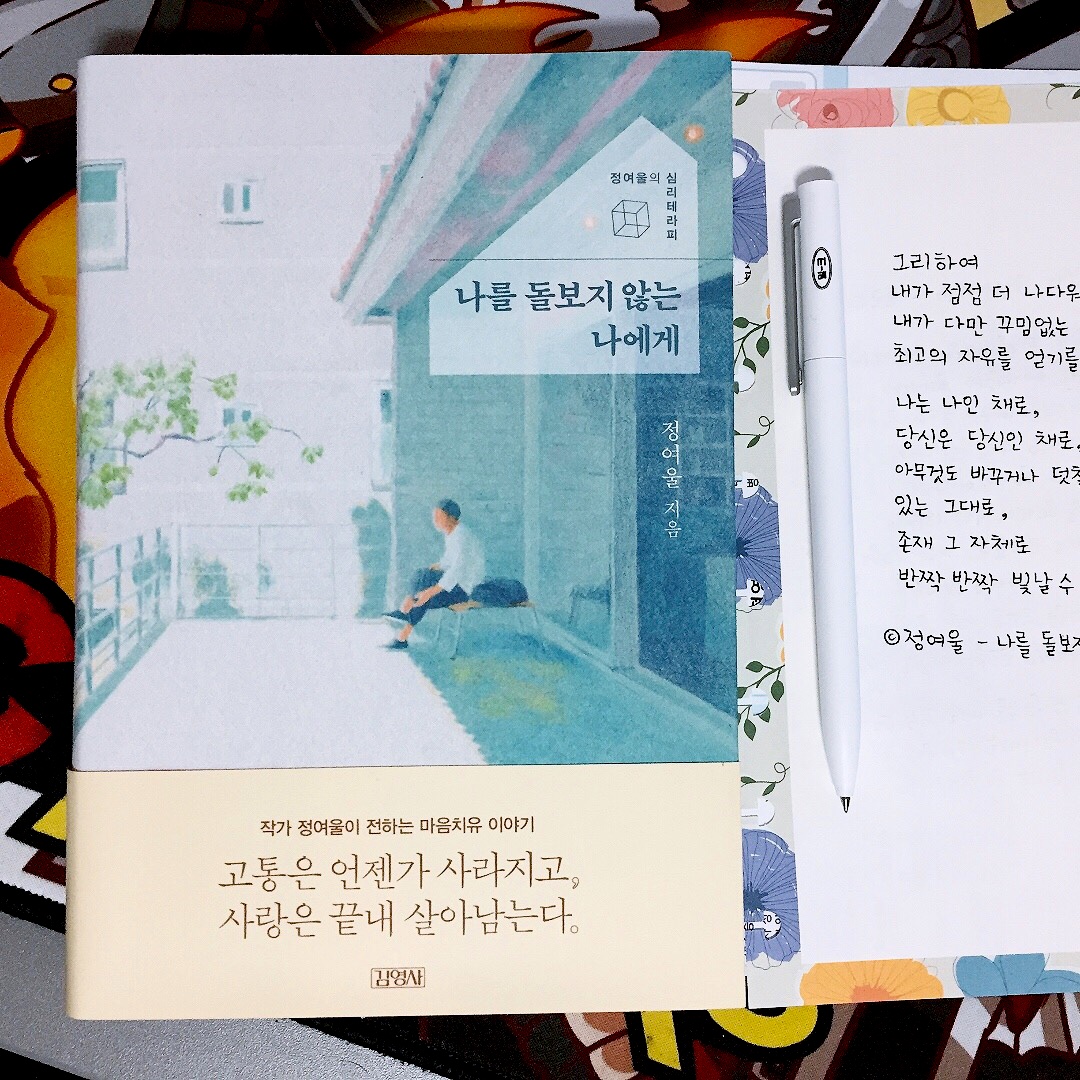 정여울의 심리테라피
나를 돌보지 않는
나에게
정여울 지음
작가 정여울이 전하는 마음치유 이야기
고통은 언젠가 사라지고,
사랑은 끝내 살아남는다.
김영사
그리하여
내가 점점 더 나다워
내가 다만 꾸밈없는
최고의 자유를 얻기를
나는 나인 채로,
당신은 당신인 채로,
아무것도 바꾸거나 덧칠
있는 그대로,
존재 그 자체로
반짝 반짝 빛날 수
©정여울 - 나를 돌보지